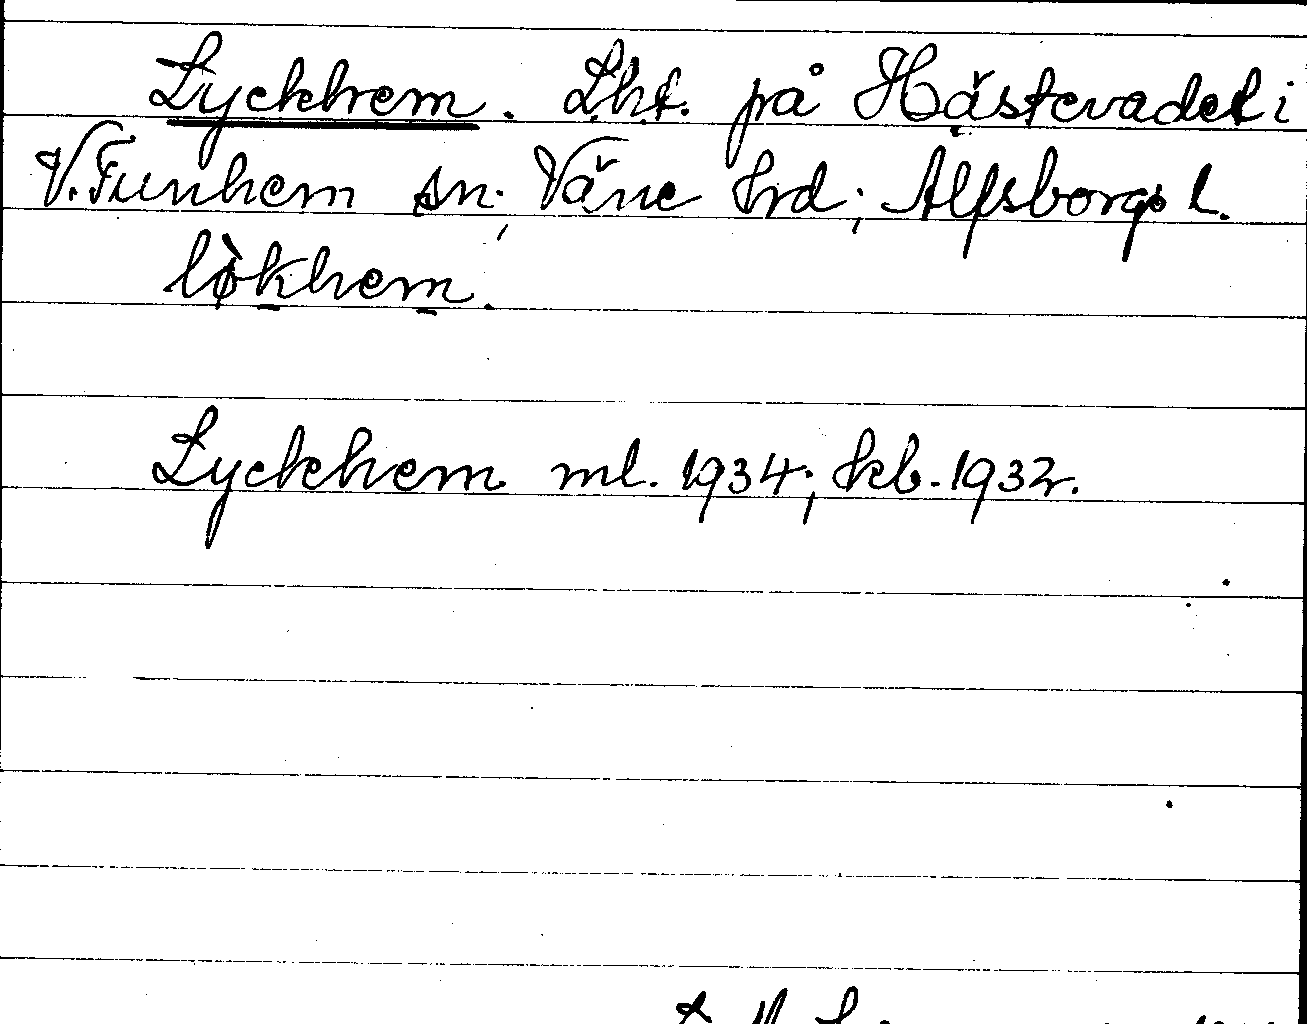 Lyckhem. Lht. på Hästevadet i
V. Tunhem sn; Väne hrd; Älfsborgs l.
lø̀khem.
Lyckhem ml. 1934; kb. 1932.